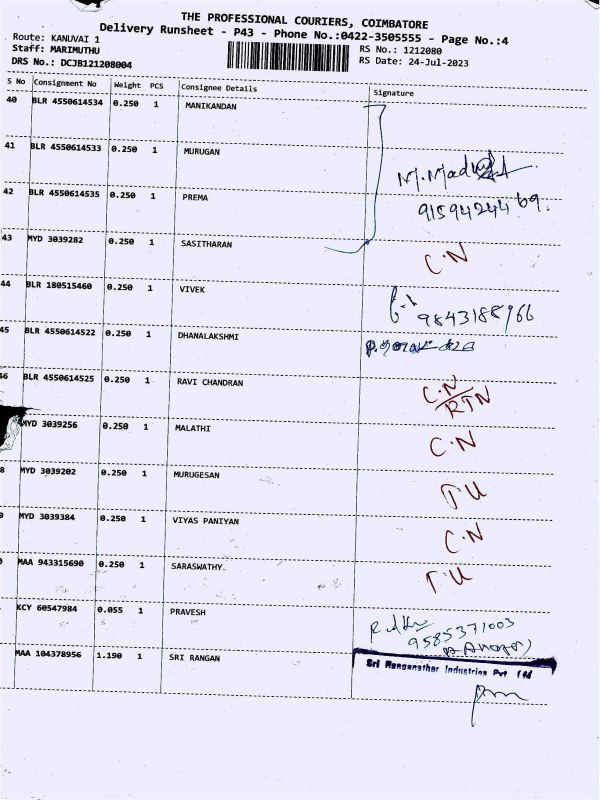 THE PROFESSIONAL COURIERS, COIMBATORE
Delivery Runsheet - P43 - Phone No.:0422-3505555 - Page No.:4
Route: KANUVAI 1
Staff: MARIMUTHU RS No.: 1212080
DRS No.: DCJB121208004 RS Date: 24-Jul-2023
S No Consignment No Weight PCS Consignee Details Signature
40 BLR 4550614534 0.250 1 MANIKANDAN
41 BLR 4550614533 0.250 1 MURUGAN
42 BLR 4550614535 0.250 1 PREMA 9159424469.
43 MYD 3039282 0.250 1 SASITHARAN C.N
44 BLR 180515460 0.250 1 VIVEK 9843188966
45 BLR 4550614522 0.250 1 DHANALAKSHMI
46 BLR 4550614525 0.250 1 RAVI CHANDRAN C.N/RTN
MYD 3039256 0.250 1 MALATHI C.N
8 MYD 3039202 0.250 1 MURUGESAN T.U
9 MYD 3039384 0.250 1 VIYAS PANIYAN C.N
0 MAA 943315690 0.250 1 SARASWATHY T.U
KCY 60547984 0.055 1 PRAVESH 9585371003
MAA 104378956 1.190 1 SRI RANGAN Sri Ranganathar Industries Pvt Ltd